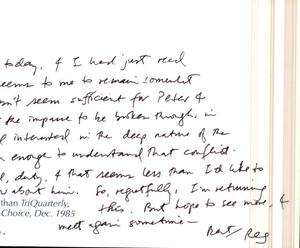 today. & I had just read
eems to me to remain somewhat
n't seem sufficient for Peter &
the impasse to be broken through, in
interested in the deep nature of the
n enough to understand that conflict.
l, duty, & that seems less than I'd like to
w about him. So, regretfully, I'm returning
than TriQuarterly,
this. But hope to see more, &
Choice, Dec. 1985
meet again sometime—